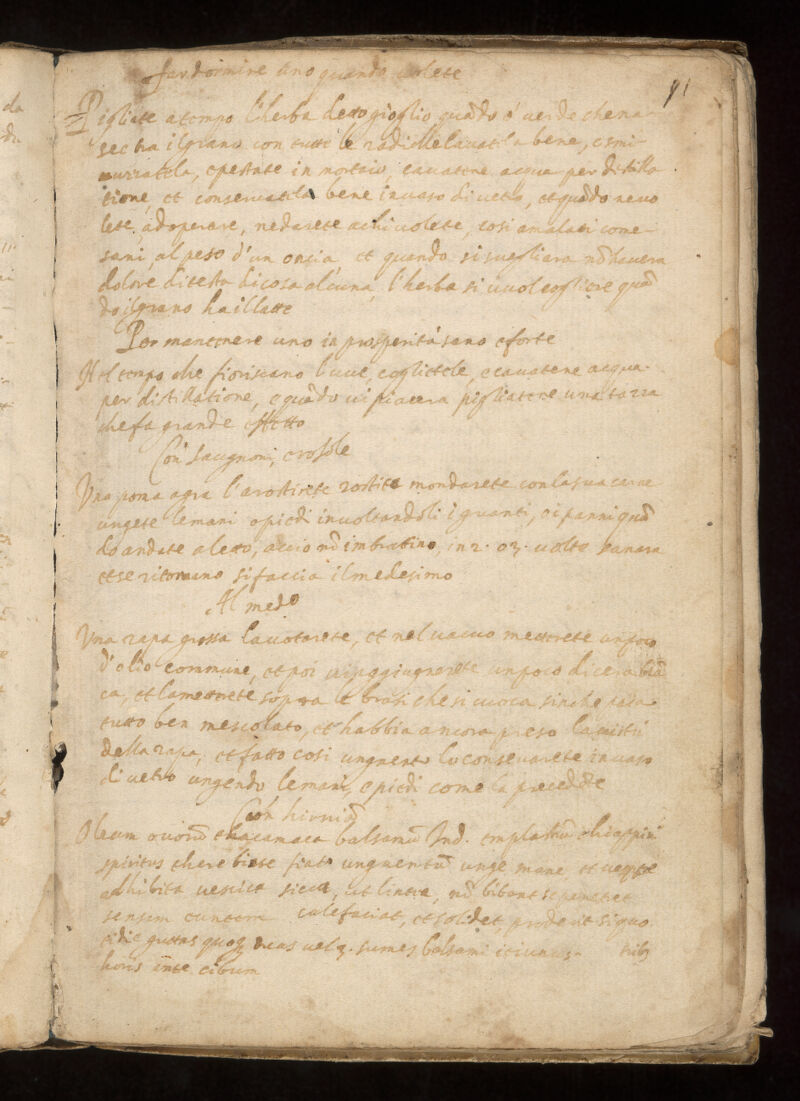 far dormire uno quando volete
91
Pigliate a tempo l'herba detto gioglio quãdo é verde che na
sec tra il grano con tutti le radici e lavatila bene, e smi
nuzzatela, e pestate in mortaio, cavatene acqua per distilla
tione, et conservatila bene in vaso di vetro, et quãdo ne vo
lete adoperare, ne darete a chi volete, cosi amalati come
sani, al peso d'un oncia et quando si svegliara nõ havera
dolore di testa di cosa alcuna, l'herba si vuol cogliere quã
do il grano ha il latte
Per mantenere uno in prosperitá sano e forte
Nel tempo che fioriscano l'uve, coglietele, e cavatene acqua
per distillatione, e quãdo vi piacera pigliatene una tazza
che fa grande effetto
Con saugnoni, e rosole
Una poma agra l'arostirete rostita mondarete con la sua carne
ungete le mani o piedi involtandoli i guanti, o i panni quã
do andate a letto, accio nõ imbratino, in 2. o 3. volte sanara
et se ritornano si faccia il medesimo
Al medº
Una rapa grossa la votarete, et nel vacuo metterete un poco
d'olio commune, et poi vi aggiugnarete un poco di cera biã
ca, et la metterete sopra le brasi che si cuoca sin che sara
tutto ben mescolato, et habbia ancora preso la virtú
della rapa, et fatto cosi unguento lo conservarete in vaso
di vetro ungendo le mani, e piedi come la precedẽte
Con hirniã
Oleum ovorũ thacamaca balsamũ Ind. emplastrũ
spiritus fiat unguentũ unge mane, et vespere
adhibita vesica sicca, ut lintea, nõ bibant
sensim cuntem calefaciat, et solidet, proderit si quo
tidie guttas quoq duas vel 3. sumes balsami ieiunus tribꝫ
horis ante cibum